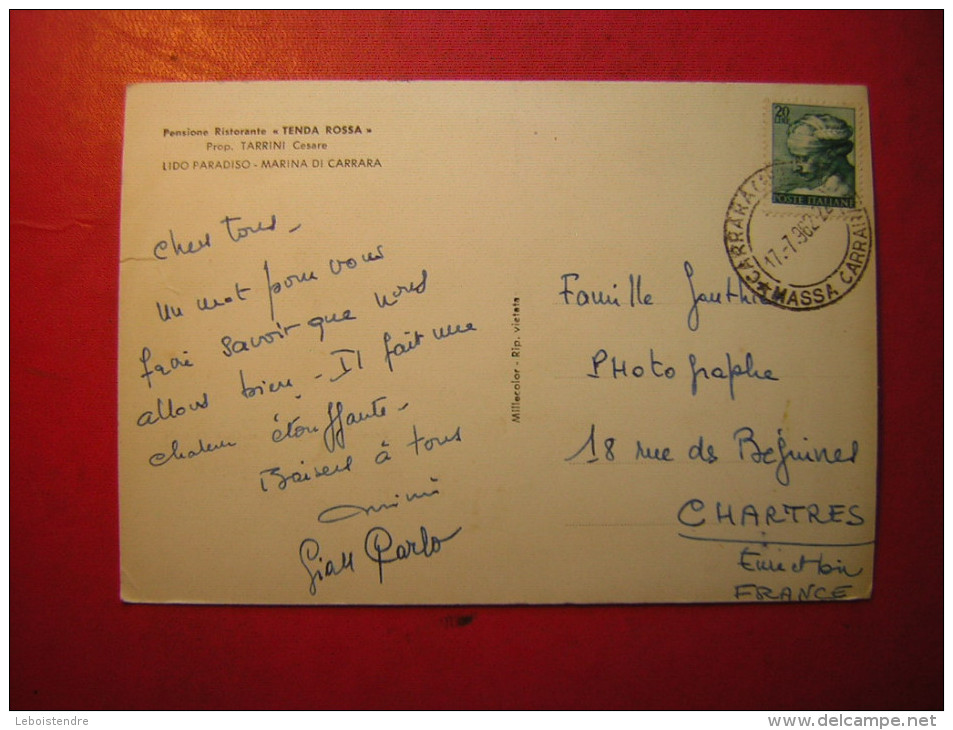 Pensione Ristorante « TENDA ROSSA »
Prop. TARRINI Cesare
LIDO PARADISO - MARINA DI CARRARA
Chers tous -
un mot pour vous
faire savoir que nous
allons bien - Il fait une
chaleur étouffante -
Baisers à tous
Mimi
Gian Carlo
Millecolor - Rip. vietata
20
LIRE
POSTE ITALIANE
CARRARA
17.-7.962-22
MASSA CARRARA
Famille Gauthier
PHotographe
18 rue ds Béguines
CHARTRES
Eure et Loir
FRANCE
Leboistendre
www.delcampe.net